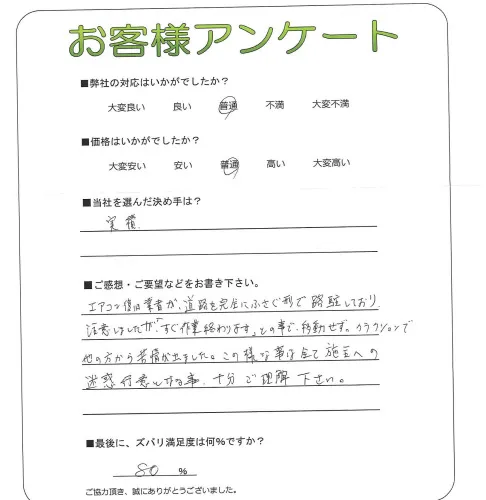 お客様アンケート
■弊社の対応はいかがでしたか？
大変良い 良い 普通 不満 大変不満
■価格はいかがでしたか？
大変安い 安い 普通 高い 大変高い
■当社を選んだ決め手は？
実積
■ご感想・ご要望などをお書き下さい。
エアコン 業者が、道路を完全にふさぐ形で路駐しており、
注意しましたが、「すぐ作業終わります」との事で、移動せず。クラクションで
他の方から苦情が出ました。この様な事は全て施主への
迷惑行為となる事、十分ご理解下さい。
■最後に、ズバリ満足度は何%ですか？
80 %
ご協力頂き、誠にありがとうございました。